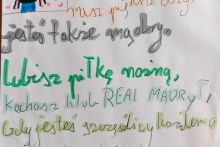 masz piękne oczy.
jesteś także mądry.
Lubisz piłkę nożną,
kochasz klub REAL MADRYT,
Gdy jesteś szczęśliwy